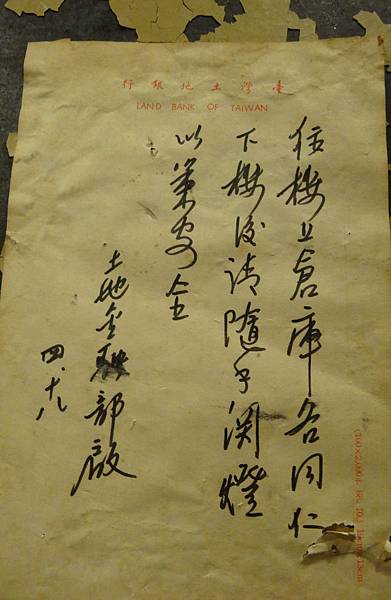 臺灣土地銀行
LAND BANK OF TAIWAN
往樓上倉庫各同仁
下樓後請隨手関燈
以策安全
土地金融部啟
四、十八